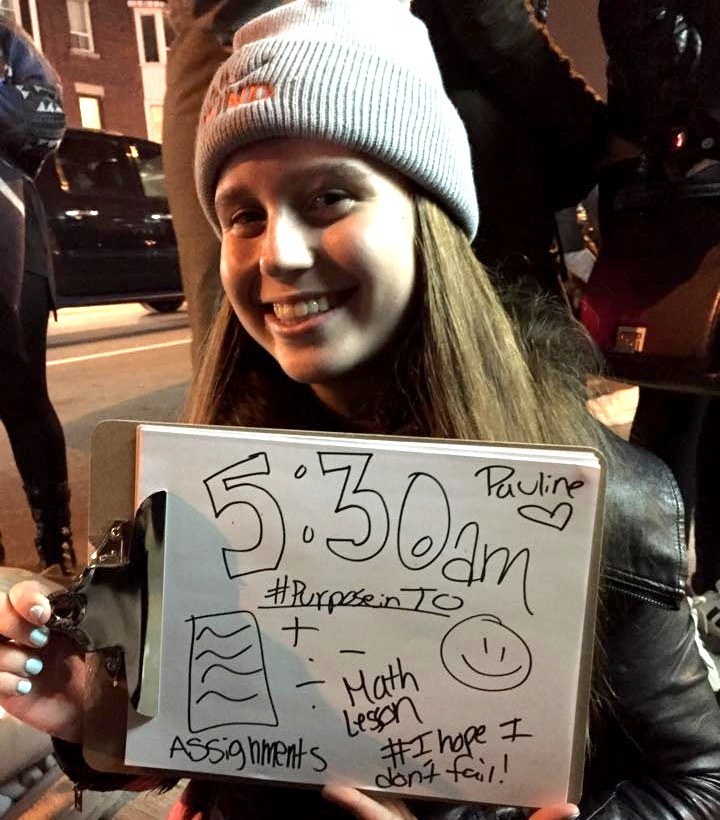 5:30am
Pauline
#PurposeinTO
+
−
÷
Math
Lesson
Assignments
#I hope I
don't fail!